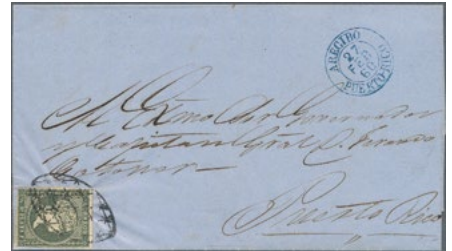 ARECIBO
27
FEB
60
PUERTO-RICO
Al Exmo Sor Governador
y Capitan Gral D. Fernando
Puerto Rico